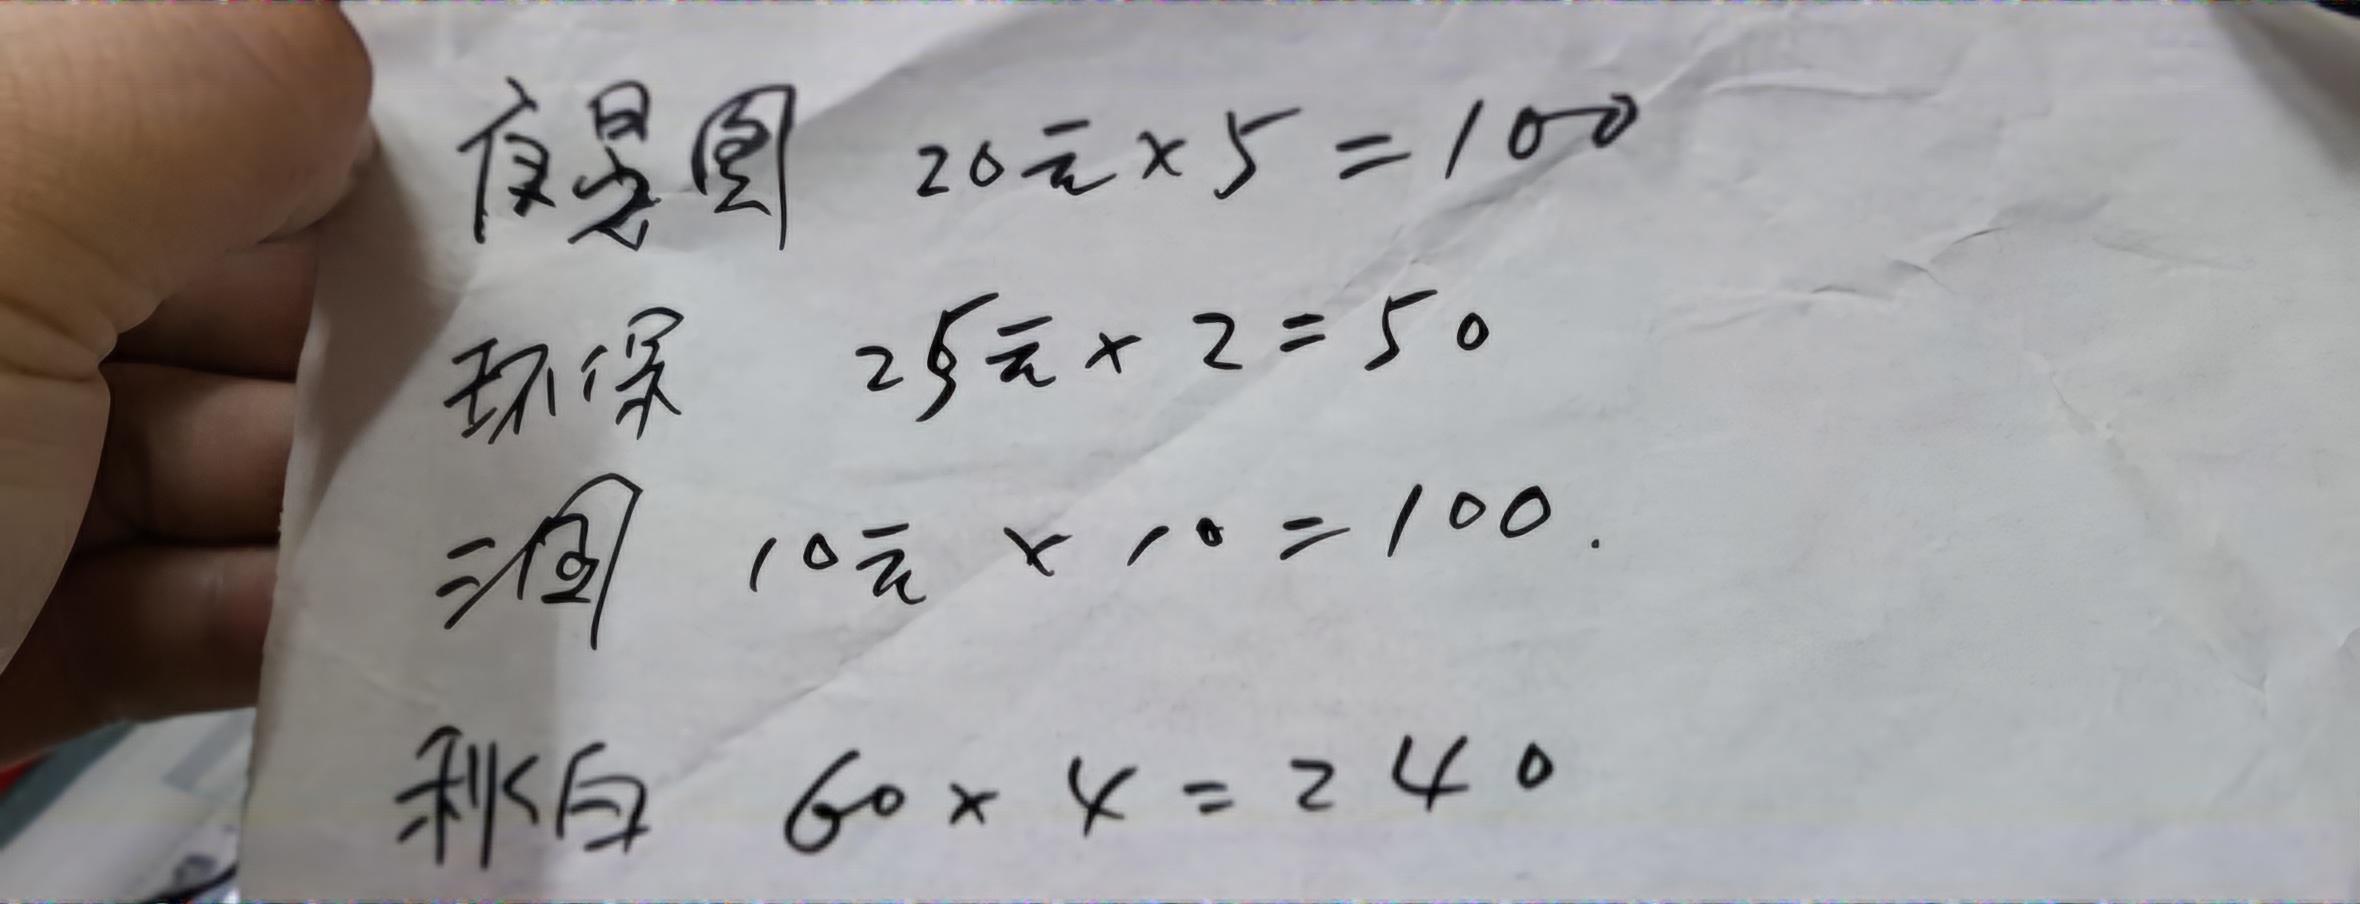 夜景图 20元×5=100
环保 25元×2=50
二图 10元×10=100.
秋白 60×4=240